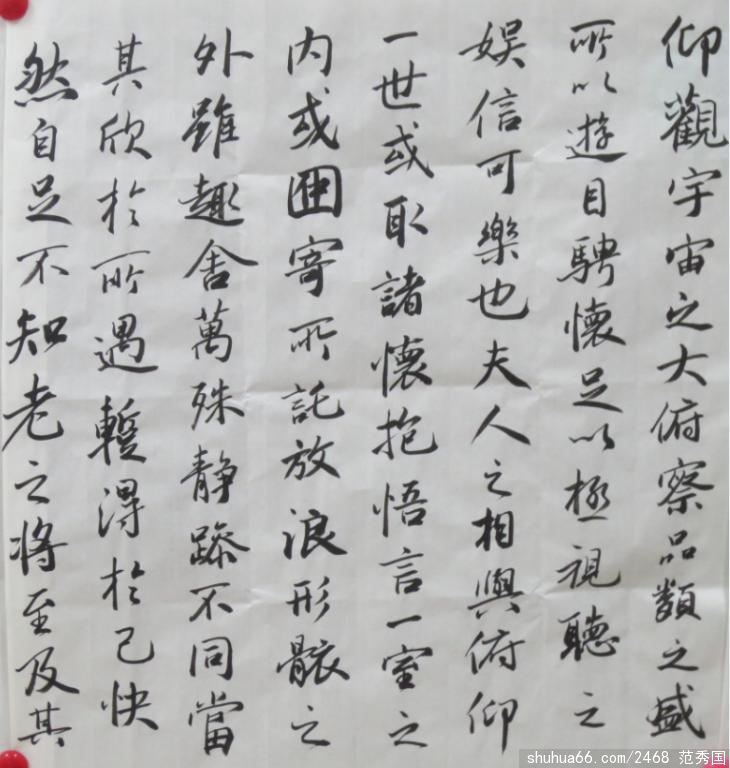 仰觀宇宙之大俯察品類之盛
所以遊目騁懷足以極視聽之
娱信可樂也夫人之相與俯仰
一世或取諸懷抱悟言一室之
内或因寄所託放浪形骸之
外雖趣舍萬殊静躁不同當
其欣於所遇暫得於己快
然自足不知老之将至及其
shuhua66.com/2468 范秀国